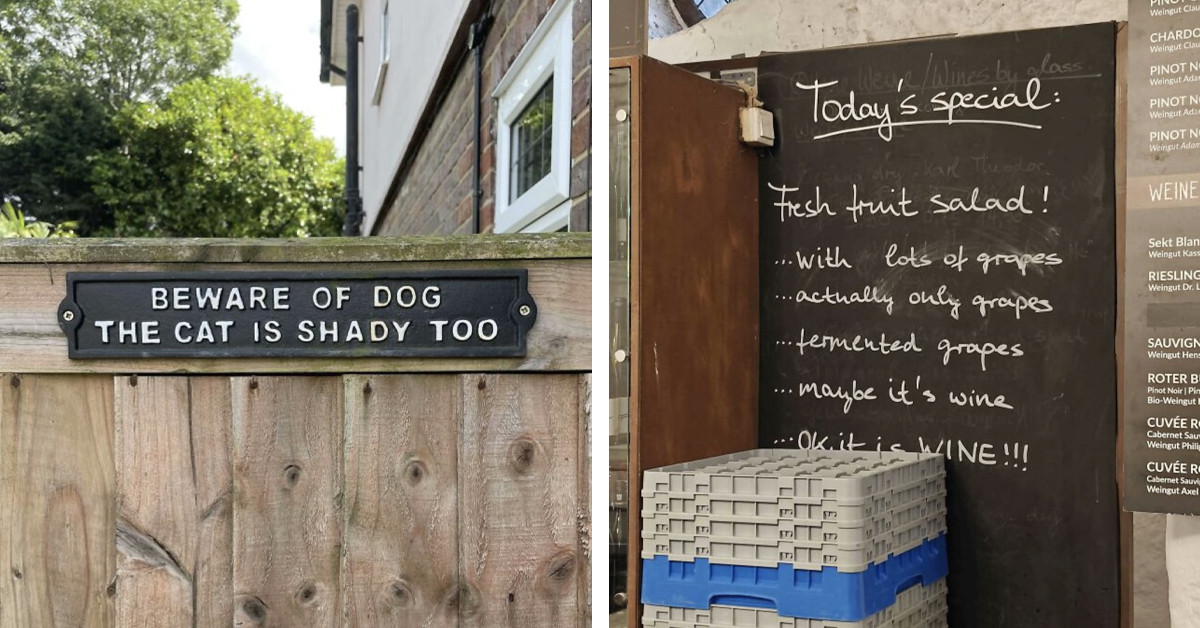 BEWARE OF DOG
THE CAT IS SHADY TOO
Weine/Wines by a glass.
Today's special:
Fresh fruit salad!
...with lots of grapes
...actually only grapes
...fermented grapes
...maybe it's wine
...OK, it is WINE!!!
Weingut
CHARDO
Weingut
PINOT N
Weingut Ada
PINOT N
Weingut Ada
PINOT N
Weingut Adam
WEINE
Sekt Blan
Weingut Kass
RIESLING
Weingut Dr. L
SAUVIGN
Weingut Hens
ROTER B
Pinot Noir | Pin
Bio-Weingut
CUVÉE RO
Cabernet Sauv
Weingut Philip
CUVÉE RO
Cabernet Sauvi
Weingut Axel